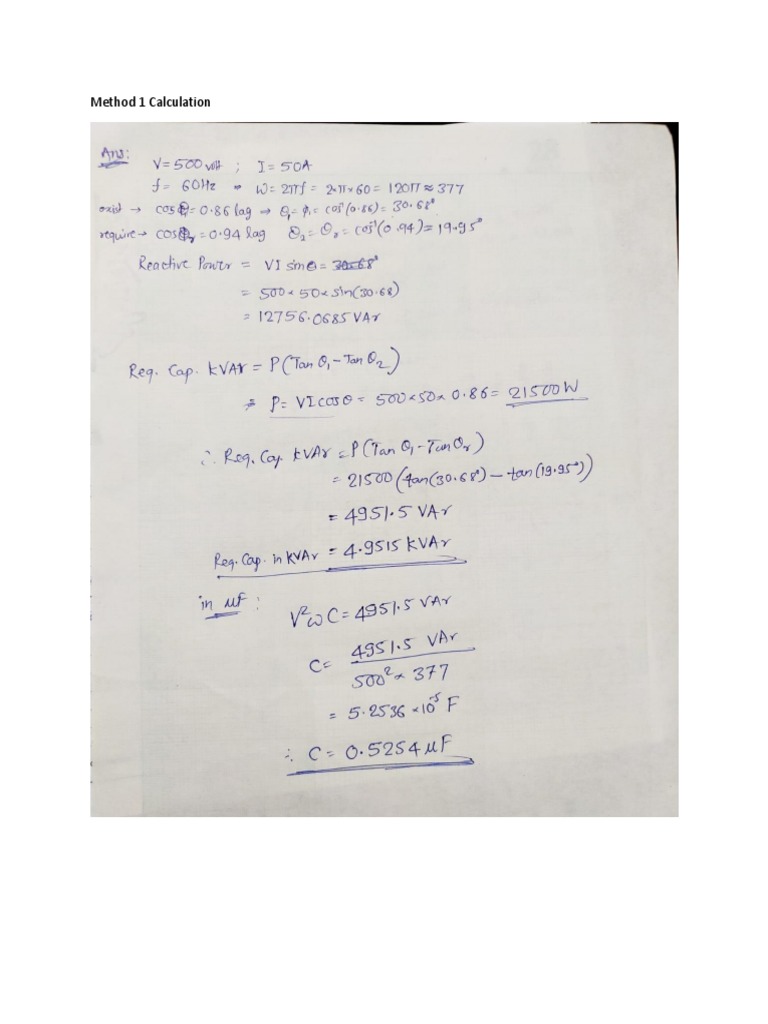 Method 1 Calculation
Ans:
V = 500 volt ; I = 50A
f = 60Hz ⇒ W = 2πf = 2×π×60 = 120π ≈ 377
exist → cosθ₁ = 0.86 lag → θ₁ = φ₁ = cos⁻¹(0.86) = 30.68°
require → cosθr = 0.94 lag θ₂ = θr = cos⁻¹(0.94) = 19.95°
Reactive Power = VI sinθ = 30.68°
= 500 × 50 × sin(30.68)
= 12756.0685 VAr
Req. Cap. kVAr = P(Tan θ₁ - Tan θ₂)
⇒ P = VI cosθ = 500×50×0.86 = 21500W
∴ Req. Cap. kVAr = P(Tan θ₁ - Tan θr)
= 21500 (tan(30.68°) - tan(19.95°))
= 4951.5 VAr
Req. Cap. in kVAr = 4.9515 kVAr
in μF :
V²ωC = 4951.5 VAr
C = 4951.5 VAr
500² × 377
= 5.2536 ×10⁻⁵ F
∴ C = 0.5254 μF